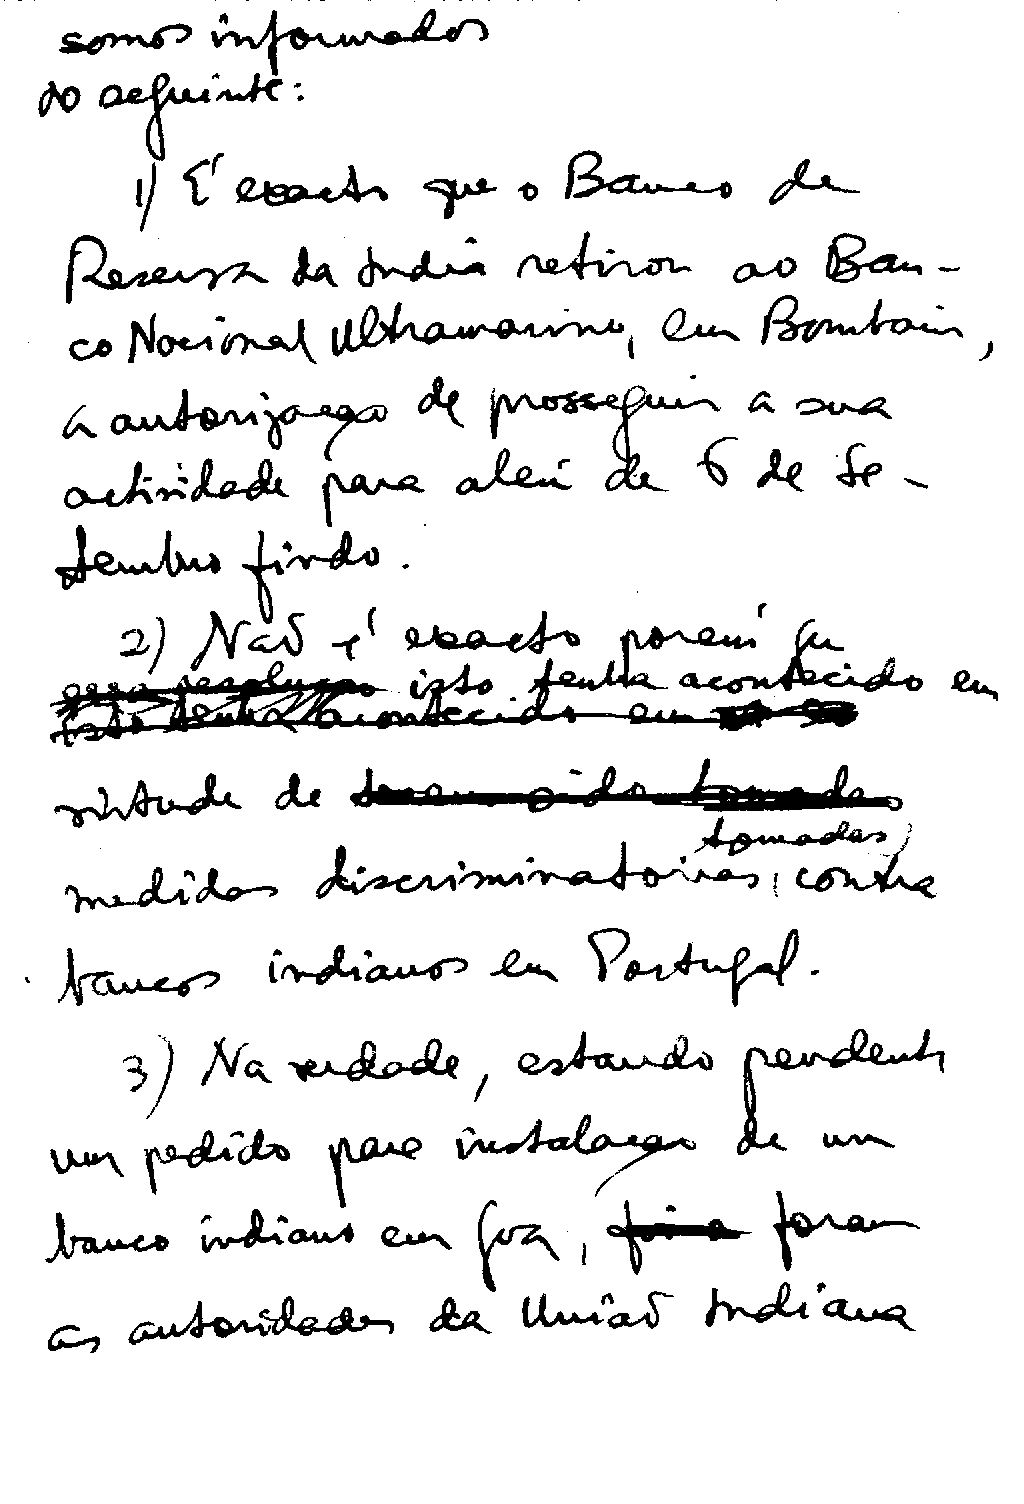 somos informados
do seguinte:
1) É exacto que o Banco de
Reserva da India retirou ao Ban-
co Nacional Ultramarino, em Bombaim,
a autorização de prosseguir a sua
actividade para além de 6 de Se-
tembro findo.
2) Não é exacto porém que
essa resolução isto tenha acontecido em
isto tenha acontecido em
virtude de terem sido tomadas
tomadas,
medidas discriminatorias, contra
bancos indianos em Portugal.
3) Na verdade, estando pendente
um pedido para instalação de um
banco indiano em Goa, foram
as autoridades da União Indiana